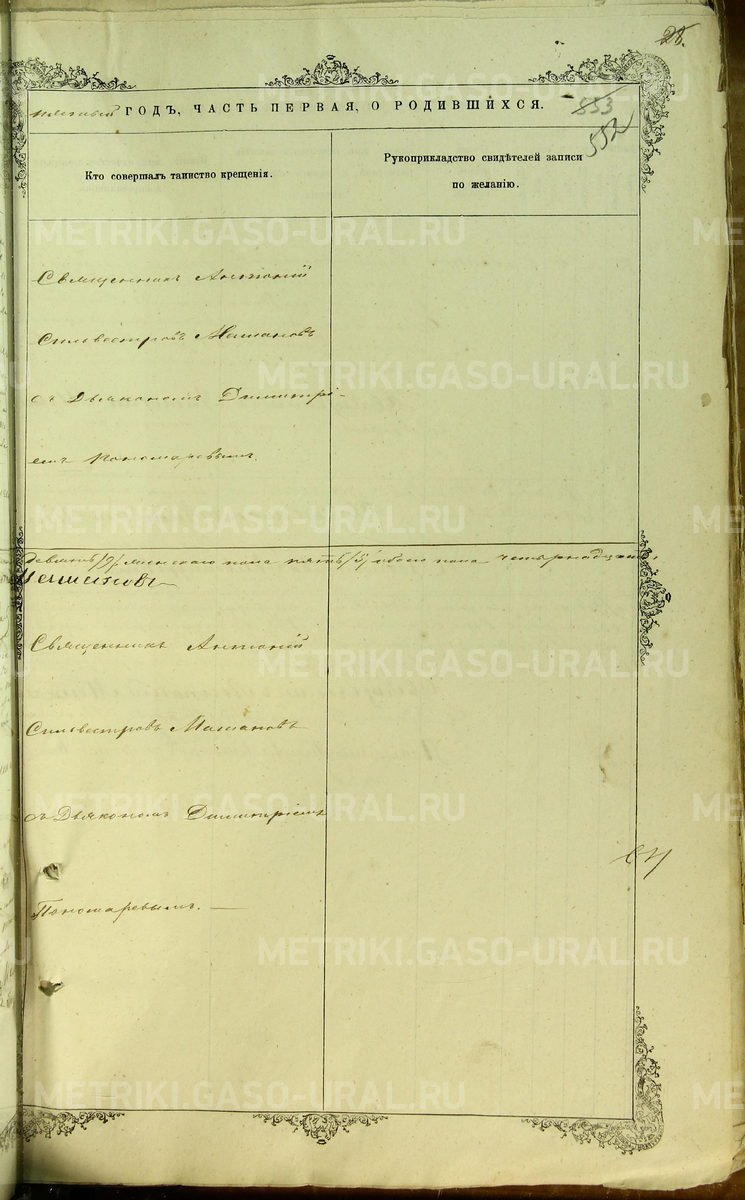 28.
ГОДЪ, ЧАСТЬ ПЕРВАЯ, О РОДИВШИХСЯ.
853
552
Кто совершалъ таинство крещенія.
Рукоприкладство свидѣтелей записи
по желанію.
METRIKI.GASO-URAL.RU
Священникъ Антоній
Силвестровъ
съ Дьякономъ Димитрі-
емъ Пономаревымъ.
Девять /9/ женскаго пола пять /5/ обоего пола четырнадцать
Священникъ Антоній
Силвестровъ
съ Дьякономъ Димитріемъ
Пономаревымъ.